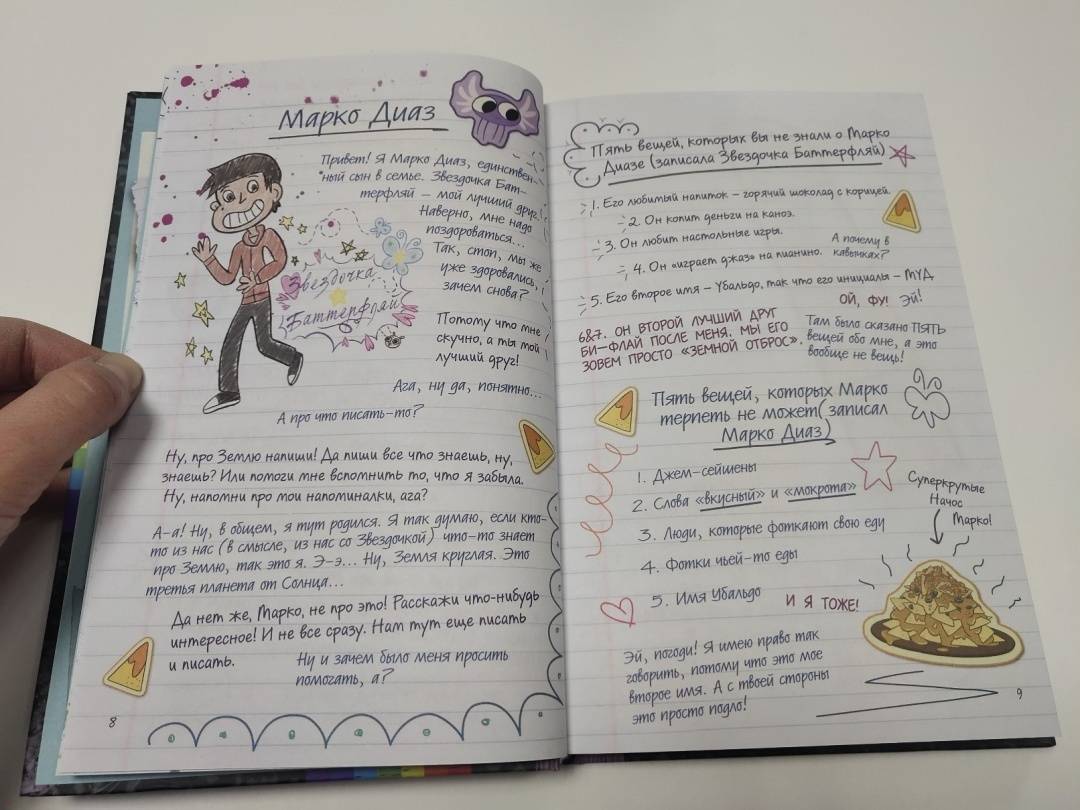 Марко Диаз
Привет! Я Марко Диаз, единствен-
ный сын в семье. Звездочка Бат-
терфляй – мой лучший друг.
Наверно, мне надо
поздороваться...
Так, стоп, мы же
уже здоровались,
зачем снова?
Звездочка
Баттерфляй
Потому что мне
скучно, а ты мой
лучший друг!
Ага, ну да, понятно...
А про что писать-то?
Ну, про Землю напиши! Да пиши все что знаешь, ну,
знаешь? Или помоги мне вспомнить то, что я забыла.
Ну, напомни про мои напоминалки, ага?
А-а! Ну, в общем, я тут родился. Я так думаю, если кто-
то из нас (в смысле, из нас со Звездочкой) что-то знает
про Землю, так это я. Э-э... Ну, Земля круглая. Это
третья планета от Солнца...
Да нет же, Марко, не про это! Расскажи что-нибудь
интересное! И не все сразу. Нам тут еще писать
и писать.
Ну и зачем было меня просить
помогать, а?
8
Пять вещей, которых вы не знали о Марко
Диазе (записала Звездочка Баттерфляй)
1. Его любимый напиток – горячий шоколад с корицей.
2. Он копит деньги на каноэ.
3. Он любит настольные игры.
4. Он «играет джаз» на пианино.
А почему в
кавычках?
5. Его второе имя – Убальдо, так что его инициалы – МУД
ОЙ, ФУ! Эй!
6&7. ОН ВТОРОЙ ЛУЧШИЙ ДРУГ
БИ-ФЛАЙ ПОСЛЕ МЕНЯ. МЫ ЕГО
ЗОВЕМ ПРОСТО «ЗЕМНОЙ ОТБРОС».
Там было сказано ПЯТЬ
вещей обо мне, а это
вообще не вещь!
Пять вещей, которых Марко
терпеть не может (записал
Марко Диаз)
1. Джем-сейшены
2. Слова «вкусный» и «мокрота»
3. Люди, которые фоткают свою еду
4. Фотки чьей-то еды
5. Имя Убальдо
И Я ТОЖЕ!
Суперкрутые
Начос
Марко!
Эй, погоди! Я имею право так
говорить, потому что это мое
второе имя. А с твоей стороны
это просто подло!
9